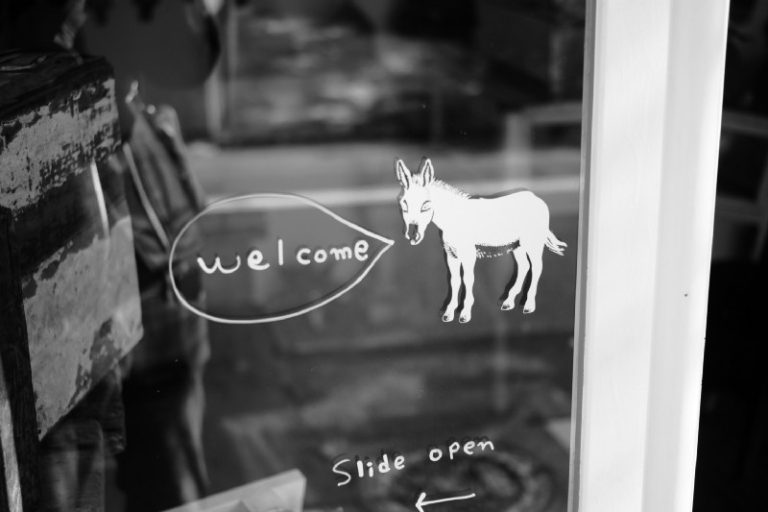 welcome
Slide open